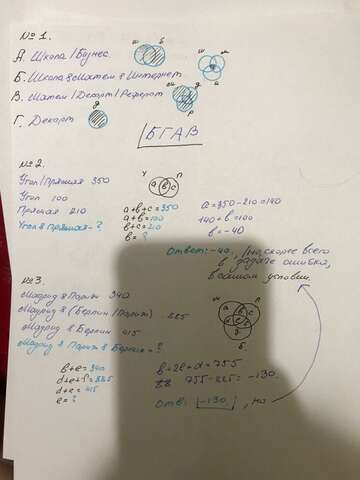 № 1.
А. Школа / Бизнес
ш б
Б. Школа & Матем & Интернет
ш м
и
В. Матем / Декарт / Реферат
м д
р
Г. Декарт
д
БГАВ
№2
Угол / Прямая 350
Угол 100
Прямая 210
Угол & Прямая - ?
У П
a b c
a+b+c=350
a+b=100
b+c=210
b=?
a=350-210=140
140+b=100
b=-40
Ответ: -40, но скорее всего
в задаче ошибка,
в самом условии.
№3
Мадрид & Париж 340
Мадрид & (Берлин / Париж) 885
Мадрид & Берлин 415
Мадрид & Париж & Берлин = ?
М П
a b c
Б.
b+e=340
d+e=415
e=?
b+2e+d=755
Отв: -130, но